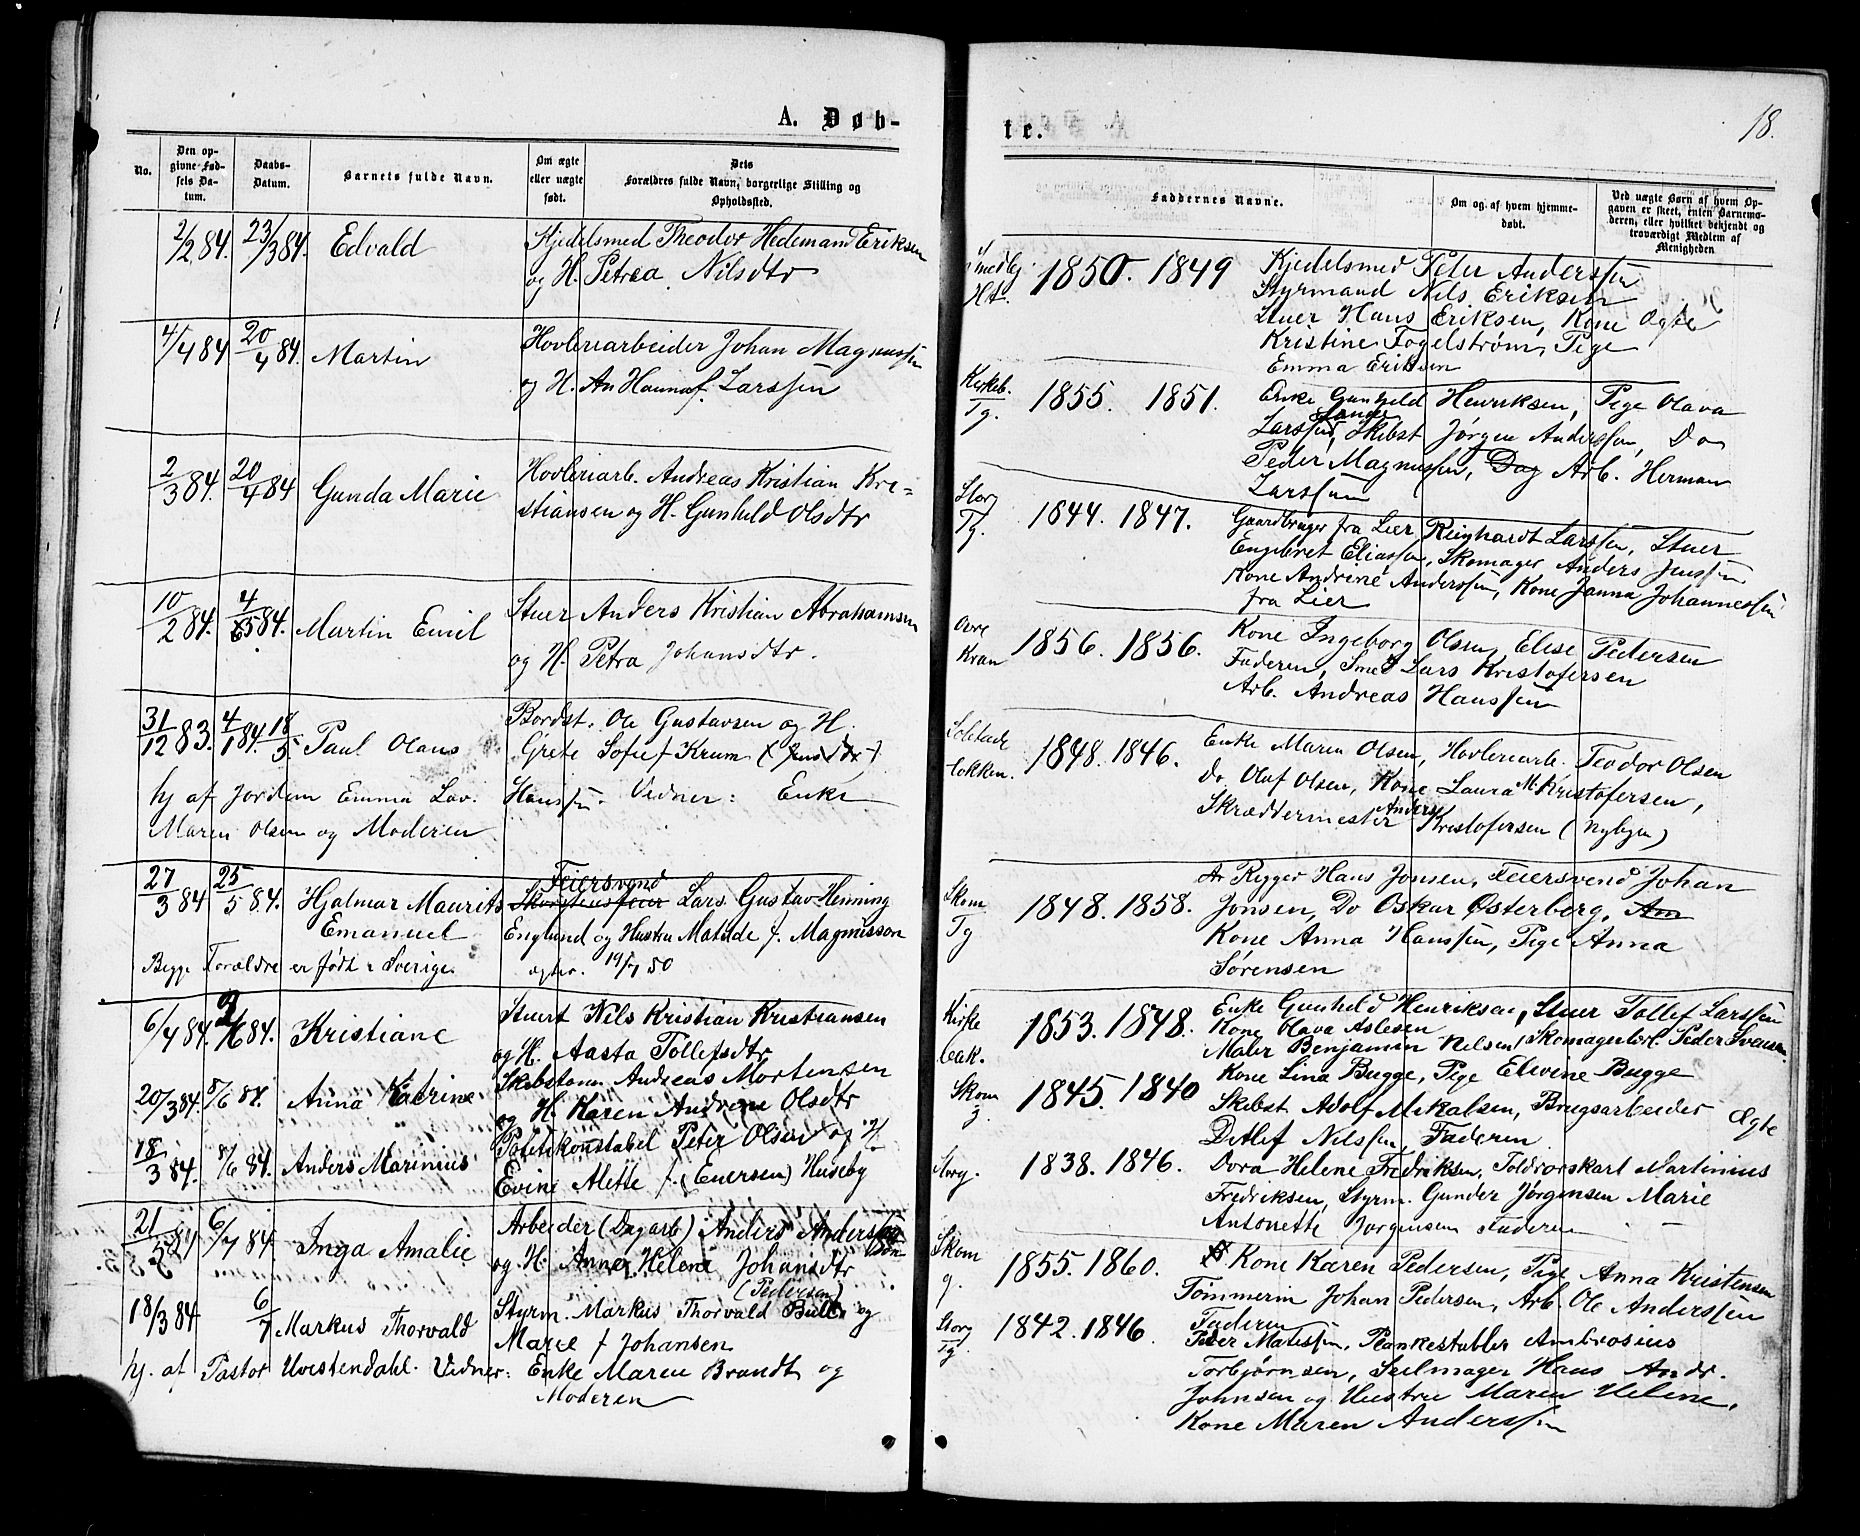 A. Døb-
No.
Den op-
givne Fød-
sels Da-
tum.
Daabs-
Datum.
Barnets fulde Navn.
Om ægte
eller uægte
født.
Dets
Forældres fulde Navn, borgerlige Stilling og
Opholdssted.
2/2 84. 23/3 84. Edvald
Kjedelsmed Theodor Hedemann Eriksen
og H. Petrea Nilsdtr
4/4 84 20/4 84. Martin
Hovleriarbeider Johan Magnussen
og H. An Hanna f. Larssen
2/3 84. 20/4 84 Gunda Marie
Hovleriarb. Andreas Kristian Kri=
stiansen og H. Gunhild Olsdtr
10/2 84. 4/5 84. Martin Emil
Stuer Anders Kristian Abrahamsen
og H. Petra Johansdtr.
31/12 83. 4/1 84. 18/5 Paul Olaus
Bordst. Ole Gustavsen og H.
Grete Sofie f. Krum
hj af Jordem Emma Lov. Hanssen. Vidner: Enke
Maren Olsen og Moderen
27/3 84 25/5 84. Hjalmar Maurits
Emanuel
Feiersvend
Skorstensfeier Lars Gustav Henning
Englund og Hustru Matilde f. Magnusson
Begge Forældre er født i Sverige. 19/7 50
6/4 84. 84. Kristiane
Stuert Nils Kristian Kristiansen
og H. Aasta Tollefsdtr
20/3 84. 8/6 84. Anna Katrine
Skibstøm. Andreas Mortensen
og H. Karen Andrene Olsdtr
18/3 84. 8/6 84. Anders Marinius
Politikonstabel Peter Olsen og H.
Evine Mette f. (Enersen) Huseby
21/5 84 6/7 84. Inga Amalie
Arbeider (Dagarb) Anders Anderssen
og H. Anne Helene Johansdtr
(Pedersen)
18/3 84 6/7 Markus Thorvald
Styrm. Markus Thorvald Bull og
Marie f Johansen
hj. af Pastor Uvestendahl. Vidner: Enke Maren Brandt og
Moderen
te.
18.
Faddernes Navne.
Om og af hvem hjemme-
døbt.
Ved uægte Børn af hvem Op-
gaven er skeet, enten Barnemo-
deren, eller hvilket bekjendt og
troværdigt Medlem af
Menigheden
1850. 1849 Kjedelsmed Peter Anderssen
Styrmand Nils Eriksen
Stuer Hans Eriksen, Kone Ogte
Kristine Fogelstrøm, Pige
Emma Eriksen
Kirkeb.
Tg. 1855. 1851. Enke Gunhild Henriksen, Pige Olava
Larssen, Skibst Jørgen Anderssen, Do
Peder Magnussen, Dag Arb. Herman
Larssen
Storg
Tg. 1844. 1847. Gaardbruger fra Lier Reinhardt Larssen, Stuer
Engebret Eliassen, Skomager Anders Jenssen
Kone Andrine Anderssen, Kone Janna Johannessen
fra Lier
Øvre
Kran 1856. 1856. Kone Ingeborg Olsen, Elise Pedersen
Faderen, Smed Lars Kristofersen
Arb. Andreas Hanssen
1848. 1846. Enke Maren Olsen, Hovleriarb. Teodor Olsen
Do Olaf Olsen, Kone Laura M. Kristofersen,
Skræddermester Anders Kristofersen (Nybyen)
Skom
Tg 1848. 1858. Rigger Hans Jonsen, Feiersvend Johan
Jonsen, Do Oskar Østerberg,
Kone Anna Hanssen, Pige Anna
Sørensen
Kirke
bak. 1853. 1848. Enke Gunhild Henriksen, Stuer Tollef Larssen
Kone Olava Aslesen
Maler Benjamin Nelsen, Skomagerlærl. Peder Svensen
Skom
g. 1845. 1840 Kone Lina Bugge, Pige Elevine Bugge
Skibst. Adolf Mikalsen, Brugsarbeider Ægte
Detlef Nilssen, Faderen
Storg. 1838. 1846. Dora Helene Fredriksen, Toldrorskarl Martinius
Fredriksen, Styrm. Gunder Jørgensen Marie
Antonette Jørgensen Faderen
Skom
g. 1855. 1860. Kone Karen Pedersen, Pige Anna Kristensen
Tømmerm Johan Pedersen, Arb. Ole Anderssen
Faderen
Storg
Tg 1842. 1846. Peder Matissen, Plankestabler Ambrosius
Torbjørnsen, Seilmager Hans Andr.
Johnsen og Hustru Maren Helene,
Kone Maren Anderssen